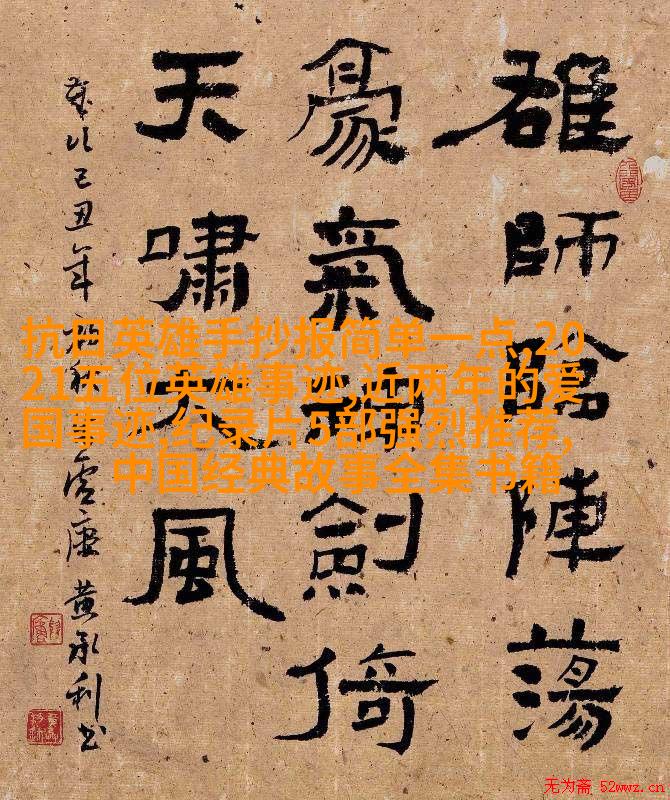 抗日英雄手抄报简单一点,20
21五位英雄事迹,近两年的爱
国事迹.纪录片5部强烈推荐,
中国经典故事全集书籍
雄師陣蕩
豪氣劍倚
天嘯大風
歲次己丑年 黄永利书
无为斋 52wwz.cn